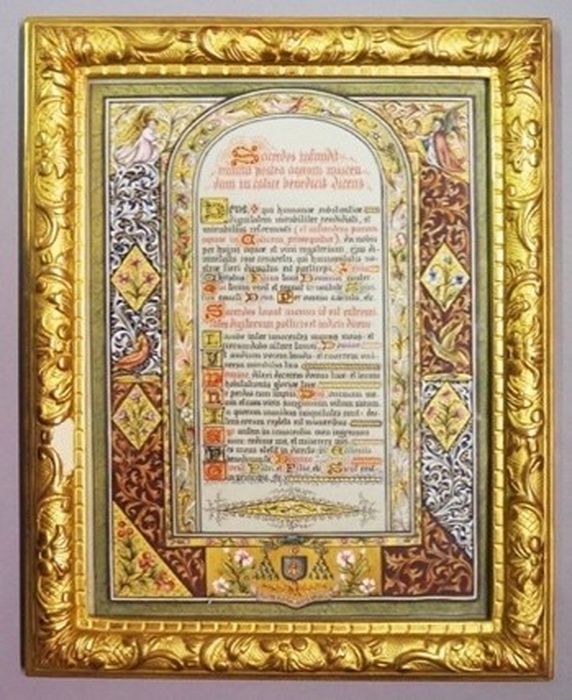 Sacerdos infundit
vinum postea aquam miscen
dam in calice benedicit dicens
Deus qui humanae substantiae
dignitatem mirabiliter condidisti, et
mirabilius reformasti (et infundens parum
aquae in Calicem, prosequitur), da nobis
per hujus aquae et vini mysterium, ejus di-
vinitatis esse consortes, qui humanitatis no-
strae fieri dignatus est particeps, Jesus
Christus Filius tuus Dominus noster
Qui tecum vivit et regnat in unitate Spiri-
tus sancti Deus Per omnia saecula, etc.
Sacerdos lavat manus id est extremi-
tates digitorum pollicis et indicis dicens
Lavabo inter innocentes manus meas: et
circumdabo altare tuum, Domine
Ut audiam vocem laudis: et enarrem uni-
versa mirabilia tua
Domine, dilexi decorem domus tuae et locum
habitationis gloriae tuae
Ne perdas cum impiis Deus, animam me-
am et cum viris sanguinum vitam meam
In quorum manibus iniquitates sunt: dex-
tera eorum repleta est muneribus
Ego autem in innocentia mea ingressus
sum: redime me, et miserere mei
Pes meus stetit in directo: in Ecclesiis
benedicam te Domine
Gloria Patri, et Filio, et Sicut erat
in principio, etc.